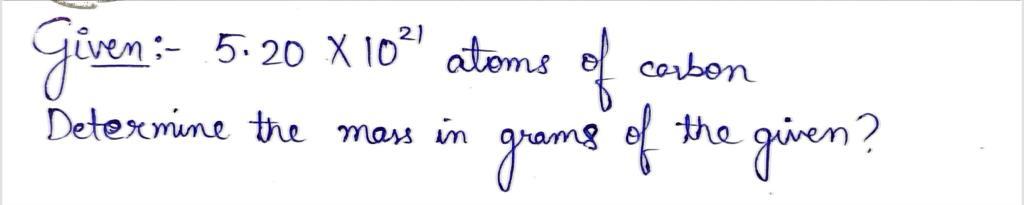 Given:- 5.20 X 10²¹ atoms of carbon
Determine the mass in grams of the given?